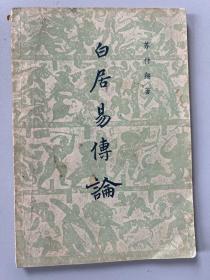 白居易傳論
蘇仲翔著